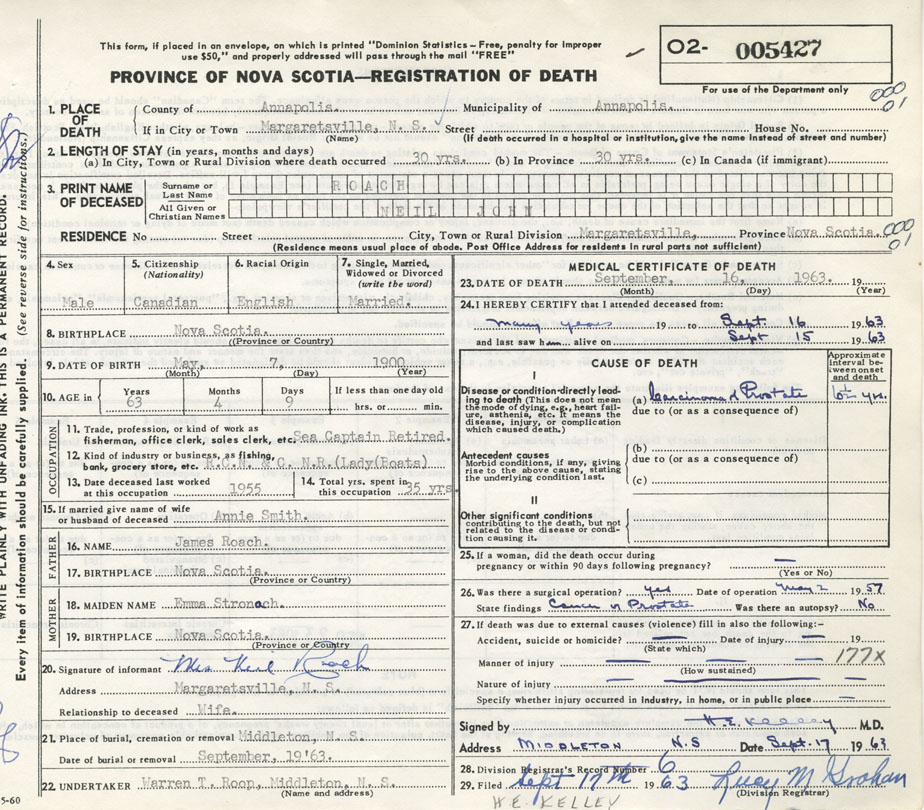 This form, if placed in an envelope, on which is printed "Dominion Statistics – Free, penalty for improper
use $50," and properly addressed will pass through the mail "FREE"
O2- 005427
PROVINCE OF NOVA SCOTIA—REGISTRATION OF DEATH
For use of the Department only
000
01
1. PLACE OF DEATH { County of Annapolis. Municipality of Annapolis.
If in City or Town Margaretsville, N. S. Street House No.
(Name) (If death occurred in a hospital or institution, give the name instead of street and number)
2. LENGTH OF STAY (in years, months and days)
(a) In City, Town or Rural Division where death occurred 30 yrs. (b) In Province 30 yrs. (c) In Canada (if immigrant)
3. PRINT NAME OF DECEASED { Surname or Last Name ROACH
All Given or Christian Names NEIL JOHN
RESIDENCE No Street City, Town or Rural Division Margaretsville, Province Nova Scotia. 000
01
(Residence means usual place of abode. Post Office Address for residents in rural parts not sufficient)
WRITE PLAINLY WITH UNFADING INK. THIS IS A PERMANENT RECORD.
Every item of information should be carefully supplied. (See reverse side for instructions.)
4. Sex
Male
5. Citizenship
(Nationality)
Canadian
6. Racial Origin
English
7. Single, Married,
Widowed or Divorced
(write the word)
Married.
8. BIRTHPLACE Nova Scotia.
(Province or Country)
9. DATE OF BIRTH May, 7, 1900
(Month) (Day) (Year)
10. AGE in { Years Months Days If less than one day old
63 4 9 hrs. or min.
OCCUPATION
11. Trade, profession, or kind of work as
fisherman, office clerk, sales clerk, etc. Sea Captain Retired.
12. Kind of industry or business, as fishing,
bank, grocery store, etc. & C. N.R. (Lady(Boats)
13. Date deceased last worked
at this occupation 1955
14. Total yrs. spent in
this occupation 35 yrs.
15. If married give name of wife
or husband of deceased Annie Smith.
FATHER
16. NAME James Roach.
17. BIRTHPLACE Nova Scotia.
(Province or Country)
MOTHER
18. MAIDEN NAME Emma Stronach.
19. BIRTHPLACE Nova Scotia.
(Province or Country)
20. Signature of informant Mrs Neil Roach
Address Margaretsville, N. S.
Relationship to deceased Wife.
21. Place of burial, cremation or removal Middleton, N.S.
Date of burial or removal September, 19'63.
22. UNDERTAKER Warren T. Roop, Middleton, N. S.
(Name and address)
5-60
MEDICAL CERTIFICATE OF DEATH
23. DATE OF DEATH September, 16, 1963. 19
(Month) (Day) (Year)
24. I HEREBY CERTIFY that I attended deceased from:
many years 19 to Sept 16 1963
and last saw him alive on Sept 15 1963
CAUSE OF DEATH
Approximate
interval be-
tween onset
and death
I
Disease or condition directly lead-
ing to death (This does not mean
the mode of dying, e.g., heart fail-
ure, asthenia, etc. It means the
disease, injury, or complication
which caused death.)
(a) Carcinoma of Prostate 6½ yrs.
due to (or as a consequence of)
Antecedent causes
Morbid conditions, if any, giving
rise to the above cause, stating
the underlying condition last.
(b)
due to (or as a consequence of)
(c)
II
Other significant conditions
contributing to the death, but not
related to the disease or condi-
tion causing it.
25. If a woman, did the death occur during
pregnancy or within 90 days following pregnancy? —
(Yes or No)
26. Was there a surgical operation? yes Date of operation May 2 1957
State findings Cancer of Prostate Was there an autopsy? No
27. If death was due to external causes (violence) fill in also the following:–
Accident, suicide or homicide? — Date of injury — 19
(State which)
177x
Manner of injury — — —
(How sustained)
Nature of injury — —
Specify whether injury occurred in Industry, in home, or in public place —
Signed by H.E. Kelley M.D.
Address MIDDLETON N.S Date Sept. 17 1963
28. Division Registrar's Record number 6
29. Filed Sept 17th 1963 Lucy M Graham
(Division Registrar)
H E. KELLEY